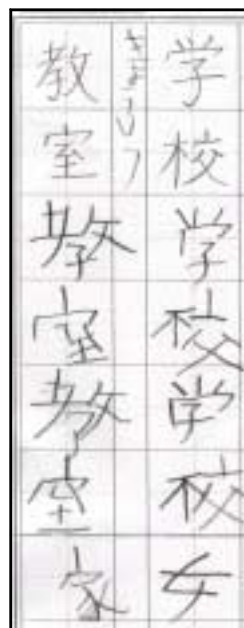 学校学校学校女
きょうしつ
教室教室教室家